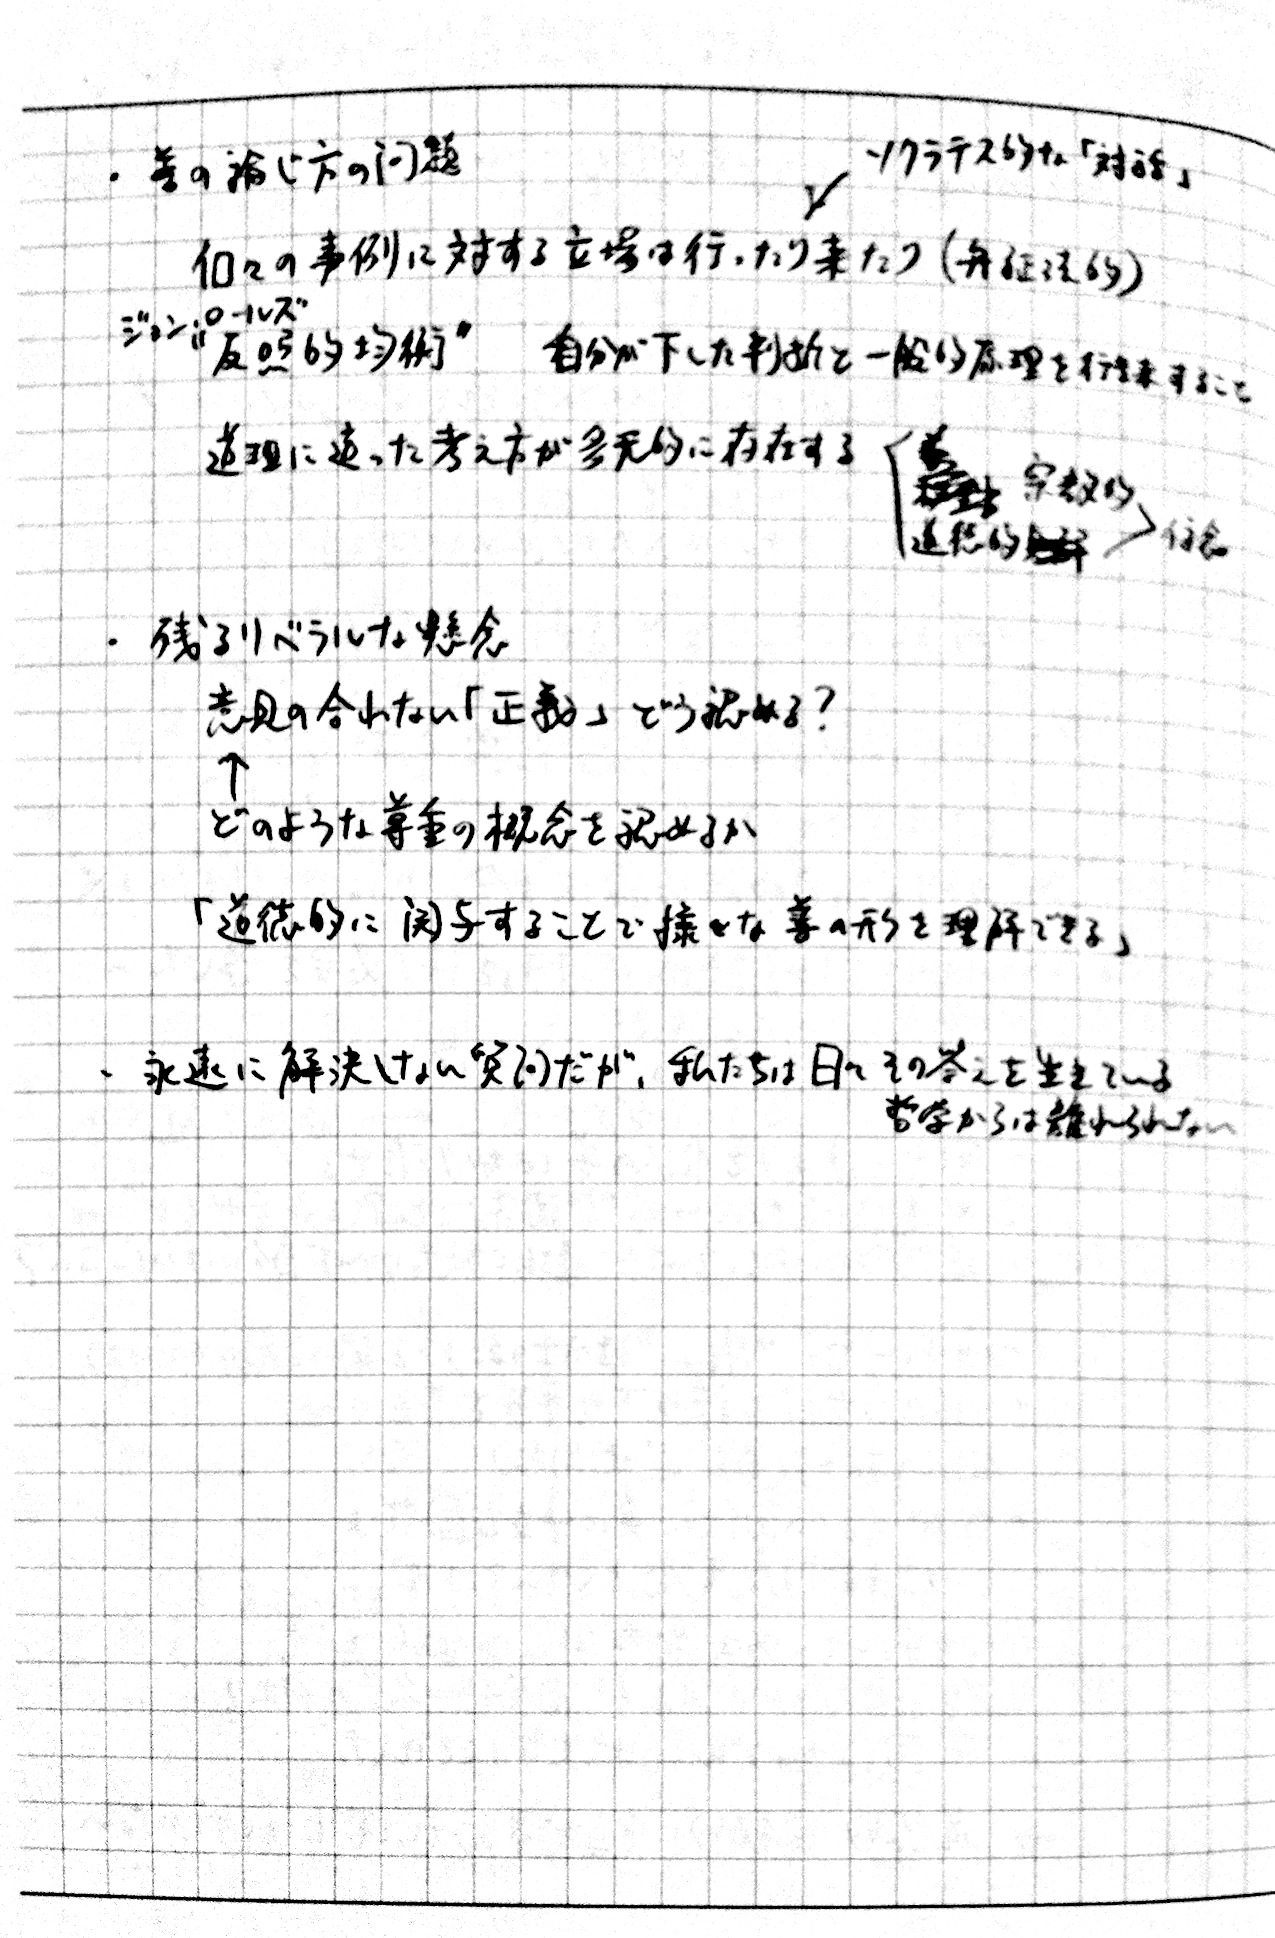 ・善の論じ方の問題
ソクラテス的な「対話」
個々の事例に対する立場は行ったり来たり(弁証法的)
ジョン・ロールズ
"反照的均衡" 自分が下した判断と一般的原理を行き来すること
道理に適った考え方が多元的に存在する
宗教的
道徳的
信念
・残るリベラルな懸念
意見の合わない「正義」どう認める?
↑
どのような尊重の概念を認めるか
「道徳的に関与することで様々な善の形を理解できる」
・永遠に解決しない質問だが、私たちは日々その答えを生きている
哲学からは離れられない